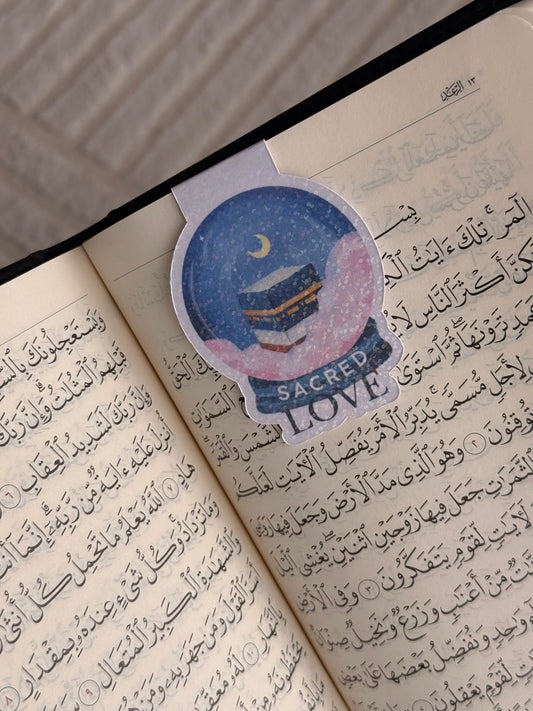 الرَّعْد ١٣
SACRED
LOVE
الٓمٓر ۚ تِلْكَ ءَايَٰتُ
أَكْثَرَ ٱلنَّاسِ لَا
تَرَوْنَهَا ۖ ثُمَّ ٱسْتَوَىٰ
لِأَجَلٍ مُّسَمًّى ۚ يُدَبِّرُ ٱلْأَمْرَ يُفَصِّلُ ٱلْءَايَٰتِ
٢ وَهُوَ ٱلَّذِى مَدَّ ٱلْأَرْضَ وَجَعَلَ فِيهَا
ٱلثَّمَرَٰتِ جَعَلَ فِيهَا زَوْجَيْنِ ٱثْنَيْنِ ۖ يُغْشِى
لِّقَوْمٍ يَتَفَكَّرُونَ ٣ وَفِى ٱلْأَرْضِ
مِّنْ أَعْنَٰبٍ وَزَرْعٌ وَنَخِيلٌ صِنْوَانٌ
وَنُفَضِّلُ بَعْضَهَا عَلَىٰ بَعْضٍ
لِّقَوْمٍ يَعْقِلُونَ
وَيَسْتَعْجِلُونَكَ
قَبْلِهِمُ ٱلْمَثُلَٰتُ ۗ وَإِنَّ رَبَّكَ
وَإِنَّ رَبَّكَ لَشَدِيدُ ٱلْعِقَابِ ٦
أُنزِلَ عَلَيْهِ ءَايَةٌ مِّن رَّبِّهِۦٓ ۗ إِنَّمَآ
هَادٍ ٧ ٱللَّهُ يَعْلَمُ مَا تَحْمِلُ كُلُّ أُنثَىٰ
وَمَا تَزْدَادُ ۖ وَكُلُّ شَىْءٍ عِندَهُۥ بِمِقْدَارٍ ٨
وَٱلشَّهَٰدَةِ ٱلْكَبِيرُ ٱلْمُتَعَالِ ٩
أَسَرَّ ٱلْقَوْلَ وَمَن جَهَرَ بِهِۦ وَمَنْ
بِٱلنَّهَارِ ١٠ لَهُۥ مُعَقِّبَٰتٌ
يَحْفَظُونَهُۥ مِنْ